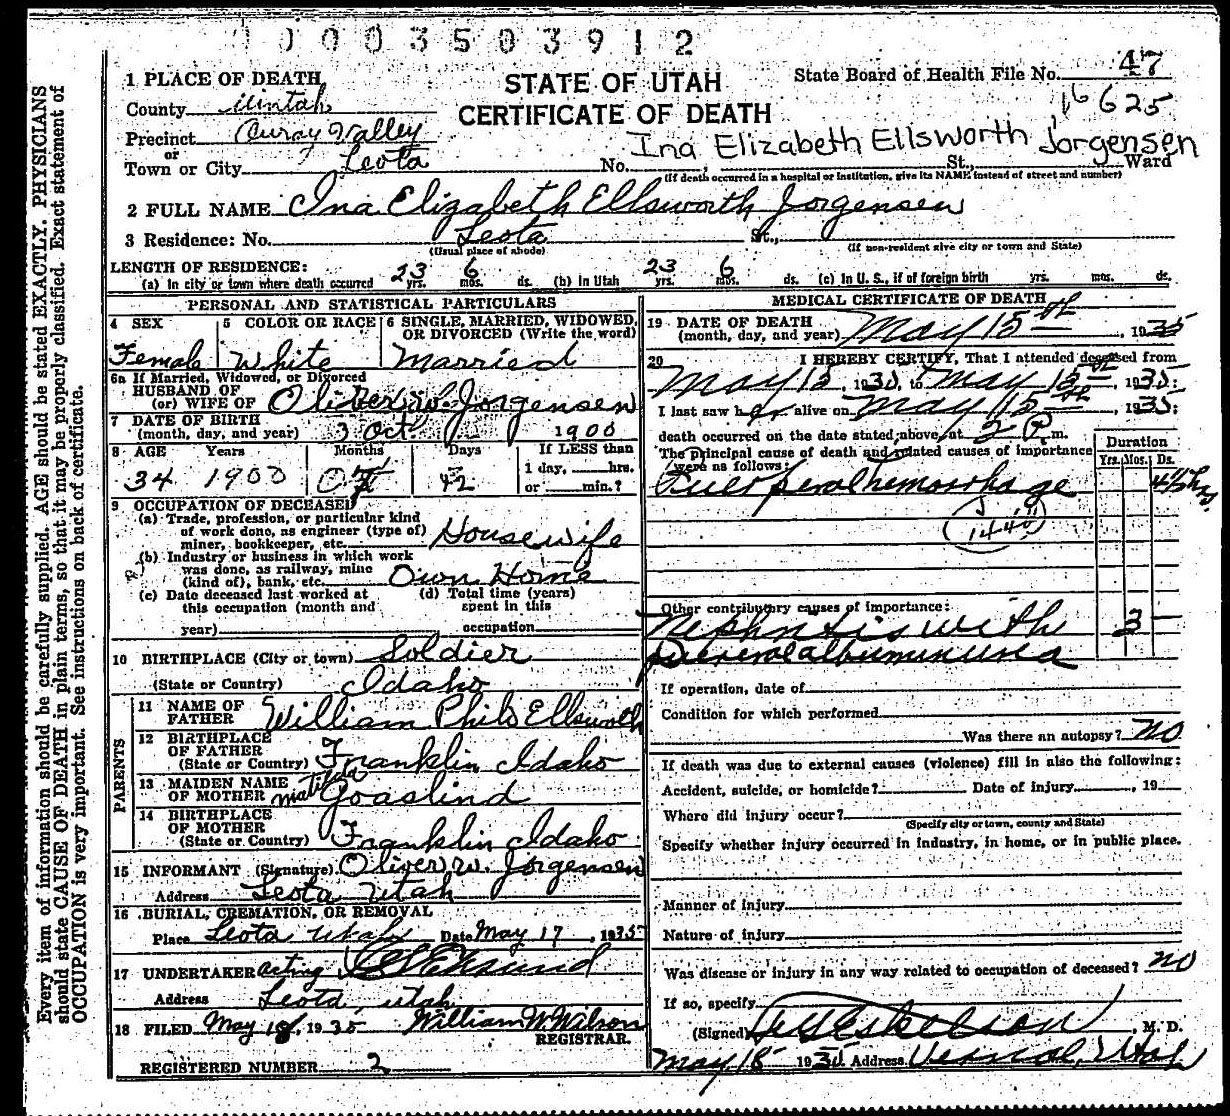 1 0 0 0 3 5 0 3 9 1 2
STATE OF UTAH
CERTIFICATE OF DEATH
State Board of Health File No. 47
16 625
1 PLACE OF DEATH
County Uintah
Precinct Ouray Valley
or
Town or City Leota No. St., Ward
Ina Elizabeth Ellsworth Jorgensen
(If death occurred in a hospital or institution, give its NAME instead of street and number)
2 FULL NAME Ina Elizabeth Ellsworth Jorgensen
3 Residence: No. Leota St.,
(Usual place of abode) (If non-resident give city or town and State)
LENGTH OF RESIDENCE:
(a) In city or town where death occurred 23 yrs. 6 mos. ds. (b) In Utah 23 yrs. 6 mos. ds. (c) In U. S., if of foreign birth yrs. mos. ds.
PERSONAL AND STATISTICAL PARTICULARS
4 SEX Female
5 COLOR OR RACE White
6 SINGLE, MARRIED, WIDOWED, OR DIVORCED (Write the word) Married
6a If Married, Widowed, or Divorced
HUSBAND OF
(or) WIFE OF Oliver W. Jorgensen
7 DATE OF BIRTH
(month, day, and year) 3 Oct. 1900
8 AGE Years Months Days If LESS than
1 day, hrs.
or min.?
34 1900 42
9 OCCUPATION OF DECEASED
(a) Trade, profession, or particular kind
of work done, as engineer (type of)
miner, bookkeeper, etc. Housewife
(b) Industry or business in which work
was done, as railway, mine
(kind of), bank, etc. Own Home
(c) Date deceased last worked at
this occupation (month and
year)
(d) Total time (years)
spent in this
occupation
10 BIRTHPLACE (City or town) Soldier
(State or Country) Idaho
PARENTS
11 NAME OF
FATHER William Philo Ellsworth
12 BIRTHPLACE
OF FATHER
(State or Country) Franklin Idaho
13 MAIDEN NAME
OF MOTHER Matilda Goaslind
14 BIRTHPLACE
OF MOTHER
(State or Country) Franklin Idaho
15 INFORMANT (Signature) Oliver W. Jorgensen
Address Leota Utah
16 BURIAL, CREMATION, OR REMOVAL
Place Leota Utah Date May 17, 1935
17 UNDERTAKER acting
Address Leota, Utah
18 FILED May 18, 1935 William W. Wilson
REGISTRAR.
REGISTERED NUMBER 2
MEDICAL CERTIFICATE OF DEATH
19 DATE OF DEATH
(month, day, and year) May 15th, 1935
20 I HEREBY CERTIFY, That I attended deceased from
May 15, 1935, to May 15th, 1935:
I last saw her alive on May 15th, 1935:
death occurred on the date stated above, at 2 P. m.
The principal cause of death and related causes of importance
were as follows:
Duration
Yrs. Mos. Ds.
Puerperal hemorrhage 4½ hrs.
Other contributory causes of importance:
Nephritis with 3
albuminuria
If operation, date of
Condition for which performed
Was there an autopsy? no
If death was due to external causes (violence) fill in also the following:
Accident, suicide, or homicide? Date of injury , 19
Where did injury occur?
(Specify city or town, county and State)
Specify whether injury occurred in industry, in home, or in public place.
Manner of injury
Nature of injury
Was disease or injury in any way related to occupation of deceased? no
If so, specify
(Signed) Eskelson, M. D.
May 18 1935 Address Vernal, Utah
Every item of information should be carefully supplied. AGE should be stated EXACTLY. PHYSICIANS
should state CAUSE OF DEATH in plain terms, so that it may be properly classified. Exact statement of
OCCUPATION is very important. See instructions on back of certificate.